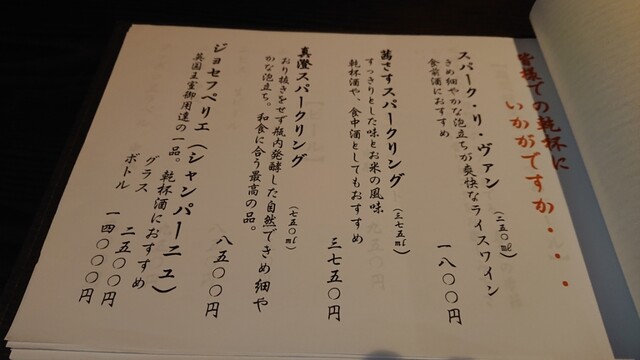 皆様での乾杯に
いかがですか・・・
スパーク・リ・ヴァン
(二五〇㎖)
きめ細やかな泡立ちが爽快なライスワイン
食前酒におすすめ
一八〇〇円
茜さすスパークリング
(三七五㎖)
すっきりとした味とお米の風味
乾杯酒や、食中酒としてもおすすめ
三七五〇円
真澄スパークリング
(七五〇㎖)
おり抜きをせず瓶内発酵した自然できめ細や
かな泡立ち。和食に合う最高の品。
八五〇〇円
ジョセフペリエ(シャンパーニュ)
英国王室御用達の一品。乾杯酒におすすめ
グラス 二五〇〇円
ボトル 一四〇〇〇円